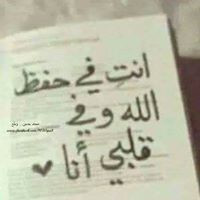 انتِ في حفظ
الله و في
قلبي أنا ♥